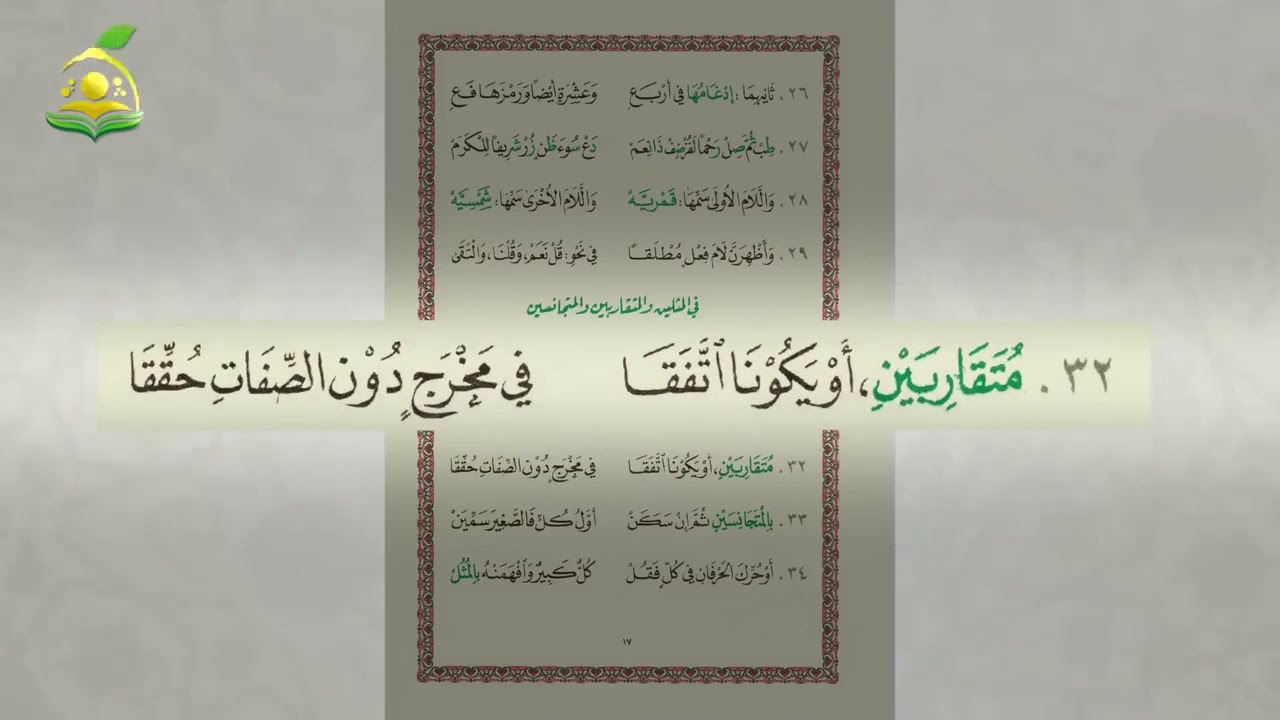 ٢٦. ثَانِيهِمَا: إِدْغَامُهَا فِي أَرْبَعِ وَعَشْرَةٍ أَيْضًا وَرَمْزَهَا فَعِ
٢٧. طِبْ ثُمَّ صِلْ رَحْمًا تَفُزْ ضِفْ ذَا نِعَمْ دَعْ سُوءَ ظَنٍّ زُرْ شَرِيفًا لِلْكَرَمْ
٢٨. وَاللَّامَ الْأُولَى سَمِّهَا: قَمْرِيَّهْ وَاللَّامَ الْأُخْرَى سَمِّهَا: شَمْسِيَّهْ
٢٩. وَأَظْهِرَنَّ لَامَ فِعْلٍ مُطْلَقًا فِي نَحْوِ: قُلْ نَعَمْ، وَقُلْنَا، وَالْتَقَى
في المثلين والمتقاربين والمتجانسين
٣٢. مُتَقَارِبَيْنِ، أَوْ يَكُوْنَا ٱتَّفَقَا فِي مَخْرَجٍ دُوْنَ الصِّفَاتِ حُقِّقَا
٣٢. مُتَقَارِبَيْنِ، أَوْ يَكُوْنَا ٱتَّفَقَا فِي مَخْرَجٍ دُوْنَ الصِّفَاتِ حُقِّقَا
٣٣. بِالْمُتَجَانِسَيْنِ ثُمَّ إِنْ سَكَنْ أَوَّلُ كُلٍّ فَالصَّغِيرَ سَمِّيَنْ
٣٤. أَوْ حُرِّكَ الْحَرْفَانِ فِي كُلٍّ فَقُلْ كُلٌّ كَبِيرٌ وَٱفْهَمَنْهُ بِالْمُثُلْ
١٧